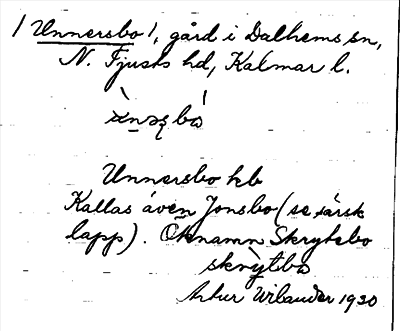 / Unnersbo /, gård i Dalhems sn,
N. Tjusts hd, Kalmar l.
Unnersbo hb
Kallas även Jonsbo (se särsk
lapp). Öknamn Skrytsbo
Artur Wilander 1930